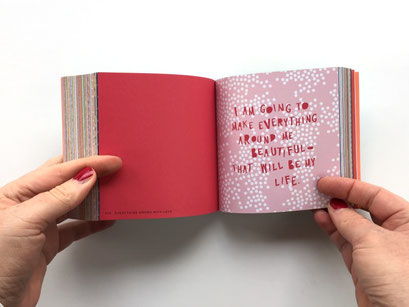 I AM GOING TO
MAKE EVERYTHING
AROUND ME
BEAUTIFUL—
THAT WILL BE MY
LIFE.